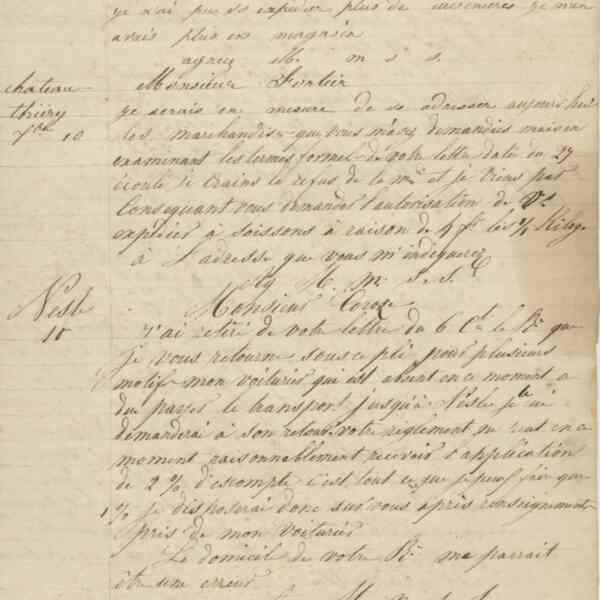 je n'ai pu vs expedier plus de je n'en
avais plus en magasin
agreez M. m s s.
chateau
thiery
7bre 10
Monsieur Fortier
je serais en mesure de vs adresser aujourd'hui
les marchandise que vous m'avez demandées mais en
examinant les termes formel de votre lettre daté du 27
écoulé je crains le refus de la mse et je viens par
consequant vous demander l'autorisation de vs
expedier à soissons à raison de 4 f les % Kilog
à l'adresse que vous m'indiquerez
Ag M. m s. s.
Nesle
10
Monsieur
J'ai retiré de votre lettre du 6 Ct le Bt que
je vous retourne sous ce pli pour plusieurs
motif mon voiturier qui est absent en ce moment a
du payer le transport jusqu'à Nesle je le lui
demanderai à son retour votre règlement ne peut en ce
moment raisonnablement recevoir l'application
de 2 % d'escompte c'est tout ce que je peux faire que
1 % je disposerai donc sur vous après renseignement
pris de mon voiturier
Le domicil de votre Bt me parrait
être une erreur
M. s. s.